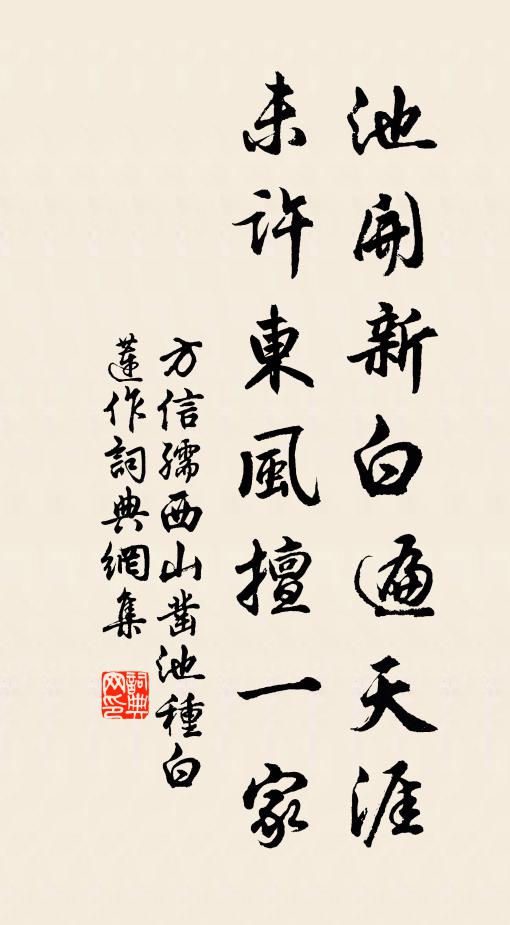 池開新白遍天涯
未許東風擅一家
方信孺西山凿池種白
蓮作詞典網集
詞典网印